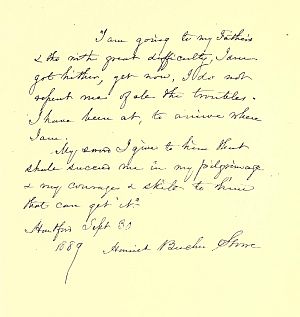 I am going to my Fathers
& tho with great difficulty, I am
got hither, yet now, I do not
repent me of all the troubles.
I have been at, to arrive where
I am.
My sword I give to him that
shall succeed me in my pilgrimage
& my courage & skill to him
that can get it"
Hartford Sept 30
1889 Harriet Beecher Stowe